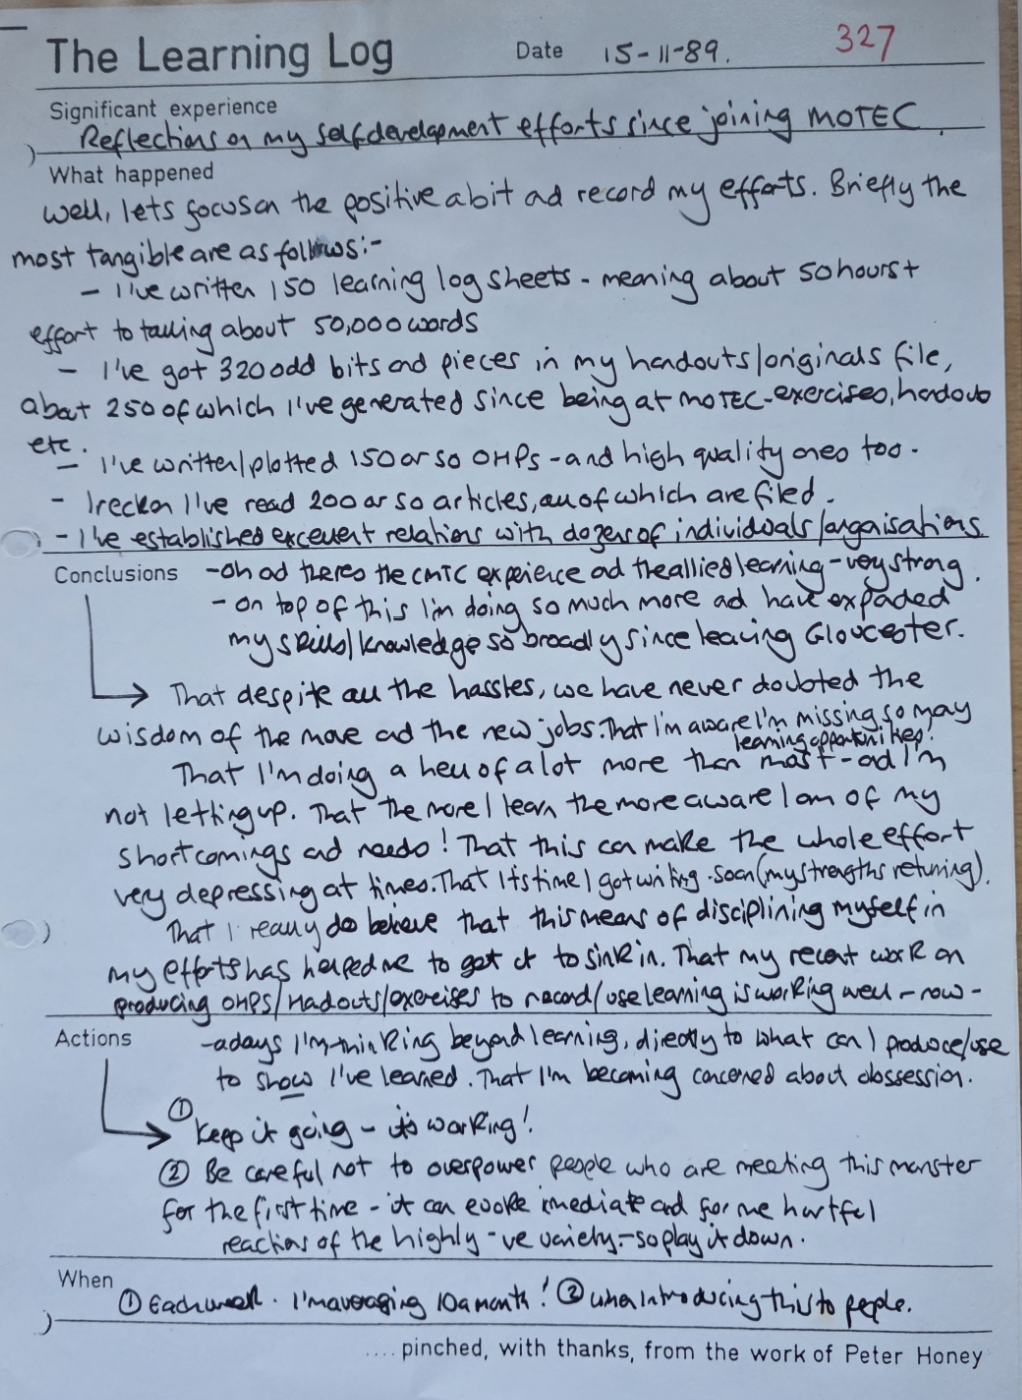 The Learning Log Date 15-11-89. 327
Significant experience
Reflections on my self development efforts since joining MOTEC.
What happened
Well, lets focus on the positive a bit ad record my efforts. Briefly the
most tangible are as follows:-
- I've written 150 learning log sheets - meaning about 50 hours +
effort to talling about 50,000 words
- I've got 320 odd bits and pieces in my handouts/originals file,
about 250 of which I've generated since being at MOTEC - exercises, handouts
etc.
- I've written/plotted 150 or so OHPs - and high quality ones too.
- I reckon I've read 200 or so articles, all of which are filed.
- I've established excellent relations with dozens of individuals/orgaisations.
Conclusions - Oh ad theres the CMTC experience ad the allied learning - very strong.
- On top of this I'm doing so much more ad have expaded
my skills/knowledge so broadly since leaving Gloucester.
That despite all the hassles, we have never doubted the
wisdom of the move ad the new jobs. That I'm aware I'm missing so may
learning opportunities!
That I'm doing a hell of a lot more than most - ad I'm
not letting up. That the more I learn the more aware I am of my
shortcomings ad needs! That this can make the whole effort
very depressing at times. That its time I got writing soon (my strengths returning).
That I really do believe that this means of disciplining myself in
my efforts has helped me to get it to sink in. That my recent work on
producing OHPs/Hadouts/exercises to record/use learning is working well - now -
Actions - adays I'm thinking beyond learning, directly to what can I produce/use
to show I've learned. That I'm becoming concerned about obssession.
① Keep it going - its working!
② Be careful not to overpower people who are meeting this monster
for the first time - it can evoke imediate and for me hurtful
reactions of the highly -ve variety - so play it down.
When ① Each week. I'm averaging 10 a month! ② When introducing this to people.
.... pinched, with thanks, from the work of Peter Honey